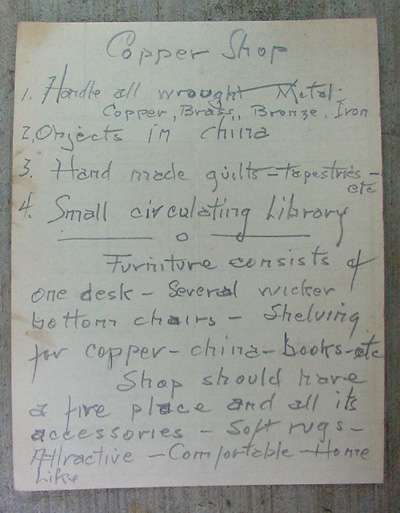 Copper Shop
1. Handle all wrought Metal.
Copper, Brass, Bronze, Iron
2. Objects in china
3. Hand made quilts - tapestries -
etc
4. Small circulating Library
Furniture consists of
one desk - Several wicker
bottom chairs - Shelving
for copper - china - books - etc
Shop should have
a fire place and all its
accessories - Soft rugs -
Attractive - Comfortable - Home
Like